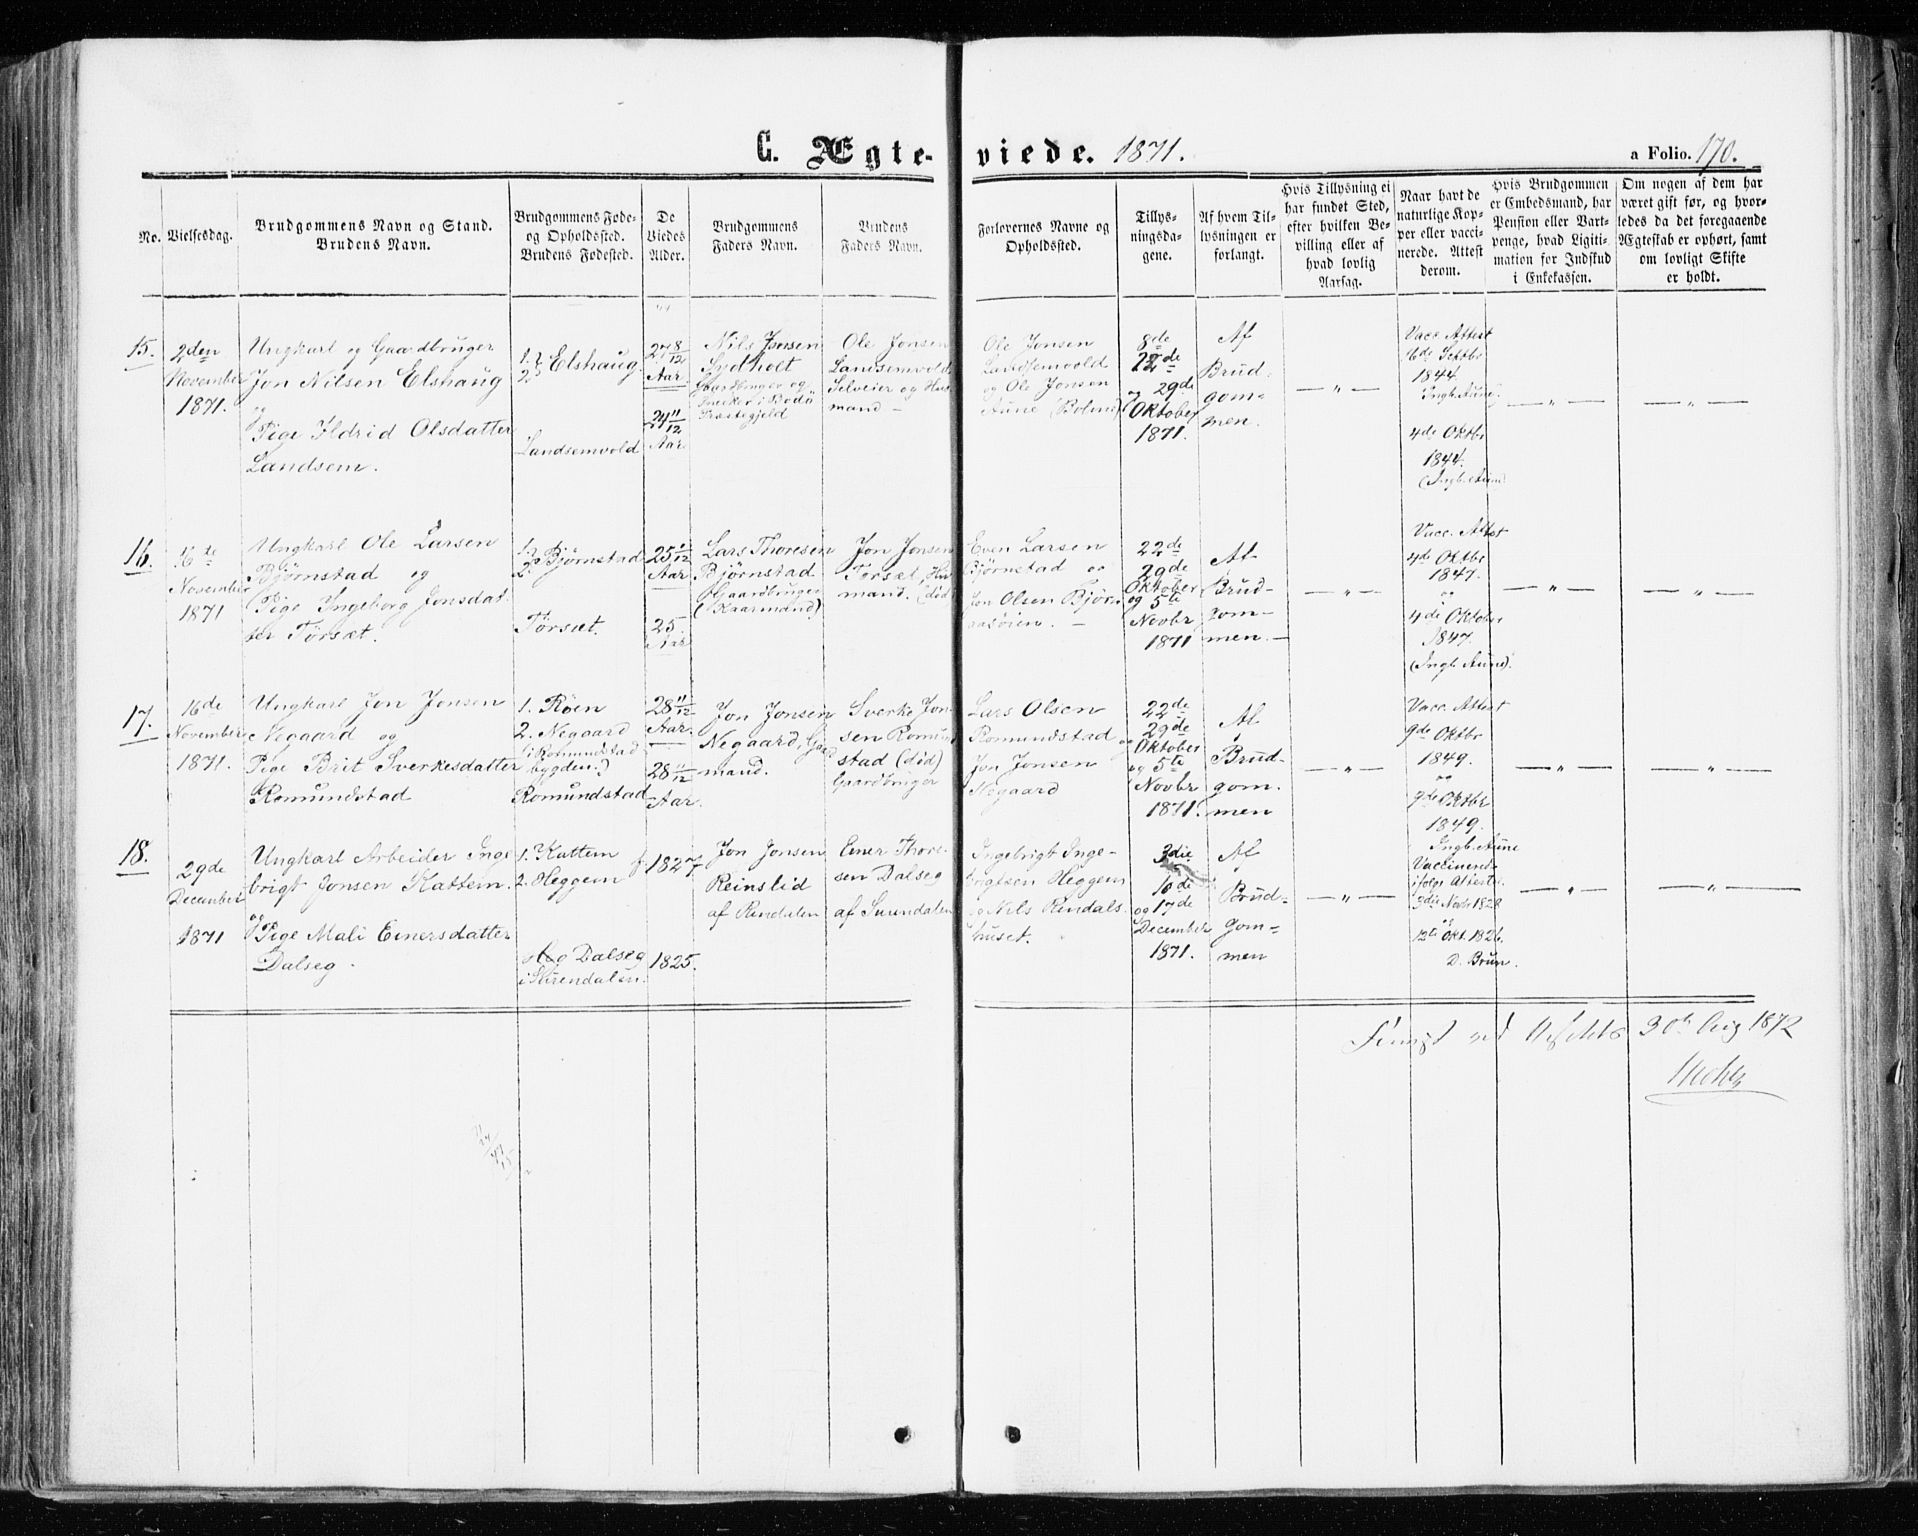 C. Ægte-viede. 1871.
a Folio. 170.
No.
Vielsesdag.
Brudgommens Navn og Stand.
Brudens Navn.
Brudgommens Føde-
og Opholdssted.
Brudens Fødested.
De
Viedes
Alder.
Brudgommens
Faders Navn.
Brudens
Faders Navn.
Forlovernes Navne og
Opholdssted.
Tillys-
ningsda-
gene.
Af hvem Til-
lysningen er
forlangt.
Hvis Tillysning ei
har fundet Sted,
efter hvilken Be-
villing eller af
hvad lovlig
Aarsag.
Naar havt de
naturlige Kop-
per eller vacci-
nerede. Attest
derom.
Hvis Brudgommen
er Embedsmand, har
Pension eller Vart-
penge, hvad Ligiti-
mation for Indskud
i Enkekassen.
Om nogen af dem har
været gift før, og hvor-
ledes da det foregaaende
Ægteskab er ophørt, samt
om lovligt Skifte
er holdt.
15.
2den
November
1871.
Ungkarl og Gaardbruger
Jon Nilsen Elshaug
og
Pige Ildrid Olsdatter
Landsem.
1. 2. Elshaug.
Landsemvold
27 8/12
Aar
24 11/12
Aar
Nils Jonsen
Sydholt
Gaardbruger og
i Bodö
Præstegjeld
Ole Jonsen
Landsemvold
Selveier og Hus
mand –
Ole Jonsen
Landsemvold
og Ole Jonsen
Aune (Bolme)
8de
22de
og 29de
Oktober
1871.
Af
Brud-
gom-
men.
— " —
Vacc. Attest
6de Septbr
1844.
Ingb. Aune
4de Oktbr
1844.
(Ingb. Aune)
— " —
— " —
16.
16te
November
1871
Ungkarl Ole Larsen
Bjørnstad og
Pige Ingeborg Jonsdat-
ter Törsæt.
1. 2. Bjørnstad
Törsæt.
25 1/12
Aar
25.
Aar
Lars Thoresen
Bjørnstad
Gaardbruger
(Kaarmand)
Jon Jonsen
Torsæt, Hus
mand. (död)
Even Larsen
Bjørnstad og
Jon Olsen Bjør-
aasøien. –
22de
29de
Oktober
og 5te
Novbr
1871
Af
Brud-
gom-
men. –
— " —
Vacc. Attest
4de Oktbr
1847.
og
4de Oktober
1847.
(Ingb. Aune).
— " —
— " —
17.
16de
November
1871.
Ungkarl Jon Jonsen
Negaard og
Pige Brit Sverkesdatter
Romundstad
1. Röen
2. Negaard
(i Romundstad
bygden.)
Romundstad
28 11/12
Aar.
28 11/12
Aar.
Jon Jonsen
Negaard, Gaard
mand.
Sverke Jon-
sen Romund
stad (död)
Gaardbruger
Lars Olsen
Romundstad og
Jon Jonsen
Negaard
22de
29de
Oktober
og 5te
Novbr
1871.
Af
Brud-
gom.
men
— " —
Vacc. Attest
9de Oktbr
1849.
og
9de Oktbr
1849.
Ingb. Aune
— " —
— " —
18.
29de
December
1871
Ungkarl Arbeider Inge
brigt Jonsen Kattem.
og
Pige Mali Einersdatter
Dalseg.
1. Kattem
2. Heggem
Dalseg
i Surendalen.
f. 1827.
1825.
Jon Jonsen
Reinslid
af Rindalen
Einer Thore-
sen Dalseg
af Surendalen
Ingebrigt Inge-
brigtsen Heggem
og Nils Rindals-
huset.
3die
10de
og 17de
December
1871.
Af
Brud-
gom-
men
— " —
Vaccineret
ifølge Attester
3die Novbr 1828
og
12te Okt. 1826.
D. Brun.
— " —
— " —
30te Aug 1872